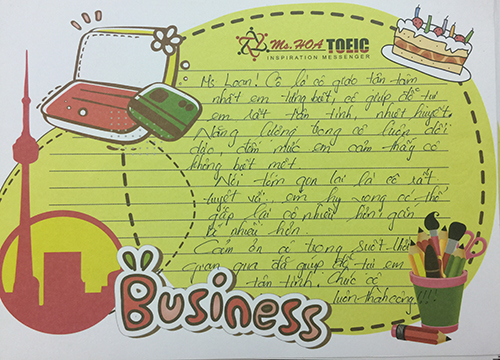 Ms. HOA TOEIC
INSPIRATION MESSENGER
Ms Loan! Cô là cô giáo tận tâm
nhất em từng biết, cô giúp đỡ tụi
em rất tận tình, nhiệt huyết.
Năng lượng trong cô luôn dồi
dào đến mức em cảm thấy cô
không biết mệt
Nói tóm gọn lại là cô rất
tuyệt vời... em hy vọng có thể
gặp lại cô nhiều hơn gần
nhiều hơn.
Cảm ơn cô trong suốt thời
gian qua đã giúp đỡ tụi em
tận tình! Chúc cô
luôn thành công!!!
Business